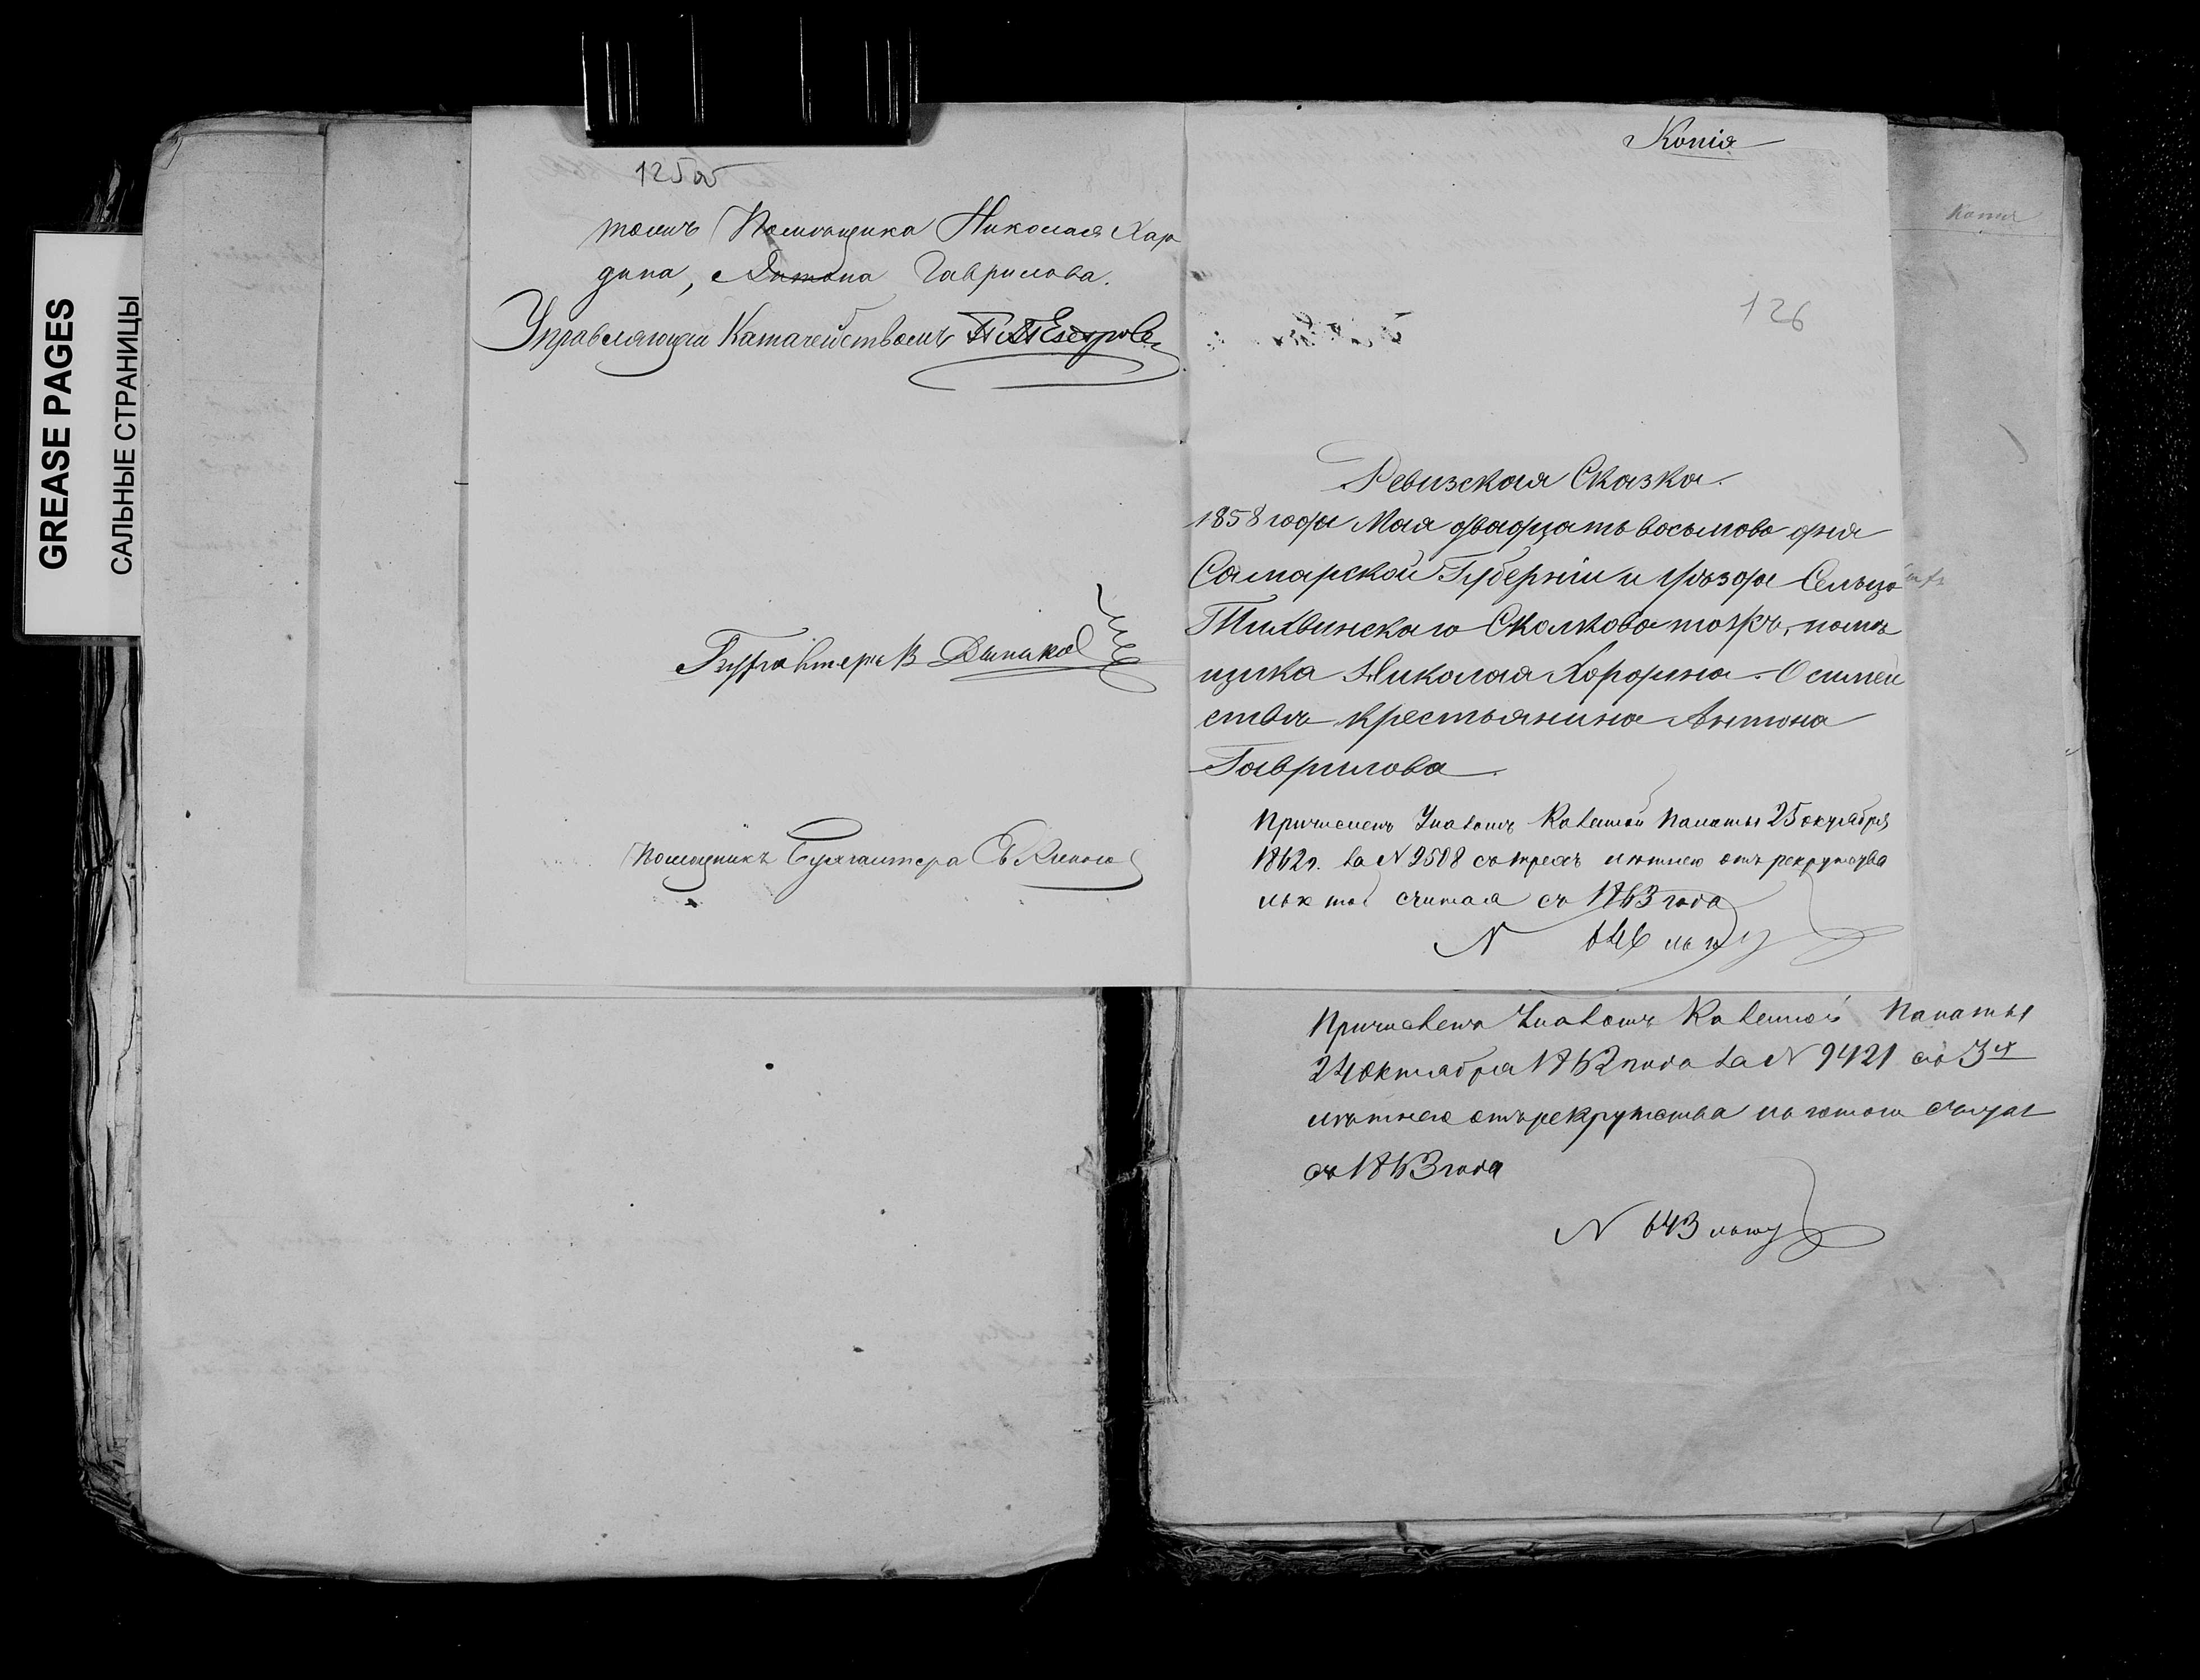 GREASE PAGES
САЛЬНЫЕ СТРАНИЦЫ
125об
Помѣщика Николая Хар
дина, Антона Гаврилова.
Управляющій Казначействомъ
Бухгалтеръ В
Помощникъ Бухгалтера
Копія
126
Ревизская Сказка.
1858 года Мая двадцать восьмова дня
Самарской Губерніи и Уѣзда Сельцо
Тихвинскаго Сколково тожъ, помѣ
щика Николая Хардина. О симей
ствѣ крестьянина Антона
Гаврилова
Причисленъ Указомъ Казенной Палаты 25 октября
1862г. за N 9508 со трехъ лѣтнею отъ рекрутства
льготой считая съ 1863 года
N 646
Копия
Причислена Указомъ Казенной Палаты
24 октября 1862 года за N 9421 со 3х
лѣтнею отъ рекрутства льготою считая
съ 1863 года
N 643